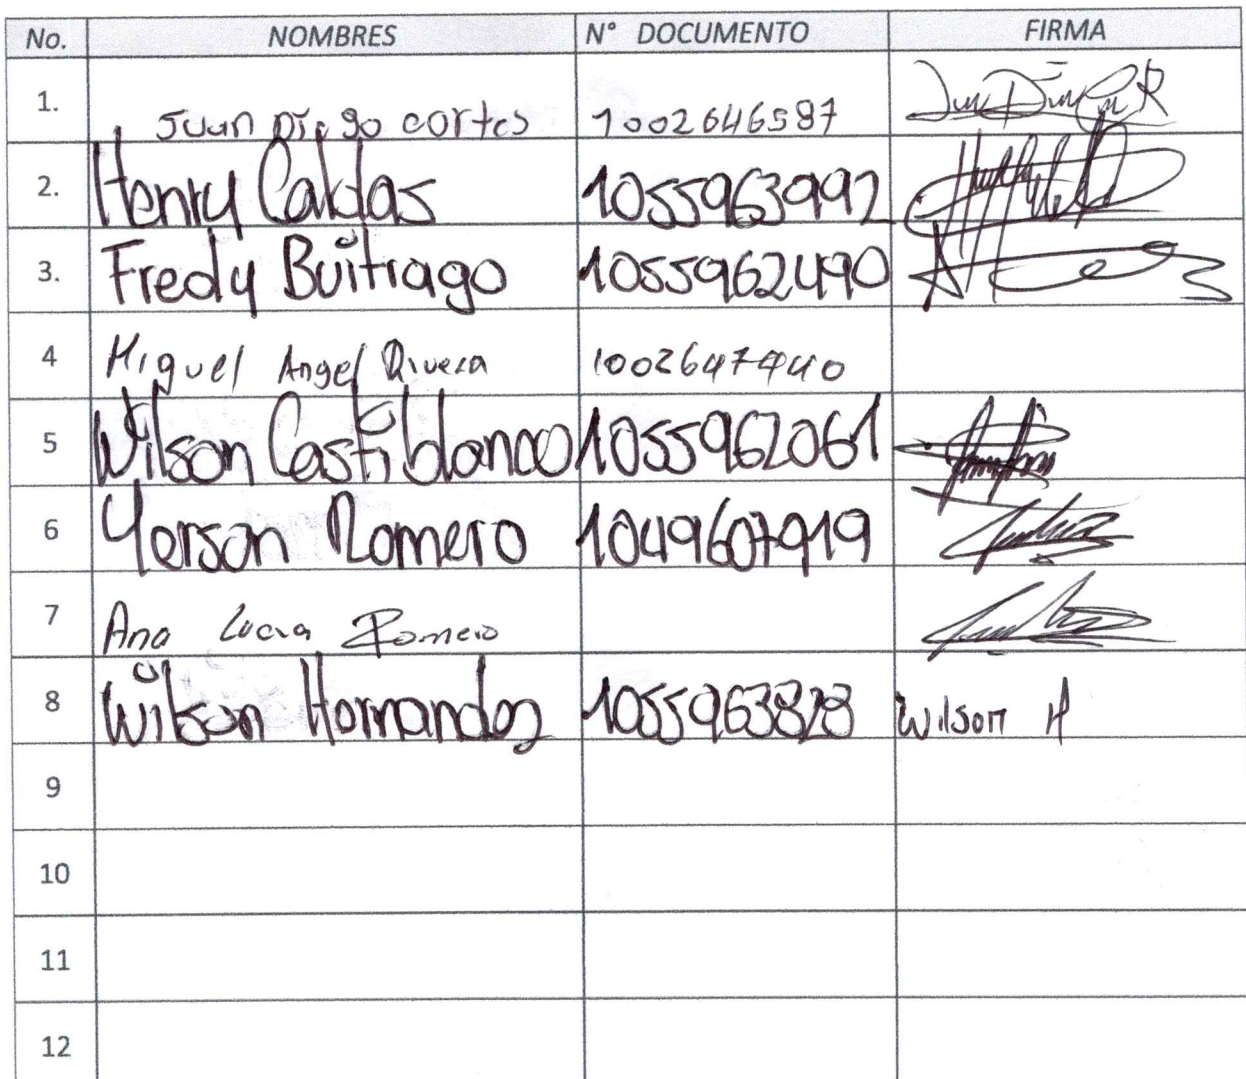 No. NOMBRES N° DOCUMENTO FIRMA
1. Juan Diego cortes 1002646587
2. Henry Caldas 1055963992
3. Fredy Buitrago 1055962490
4 Miguel Angel Rivera 1002647440
5 Wilson Castiblanco 1055962061
6 Yerson Romero 1049607919
7 Ana Lucia Romero
8 Wilson Hernandez 1055963828 Wilson H
9
10
11
12